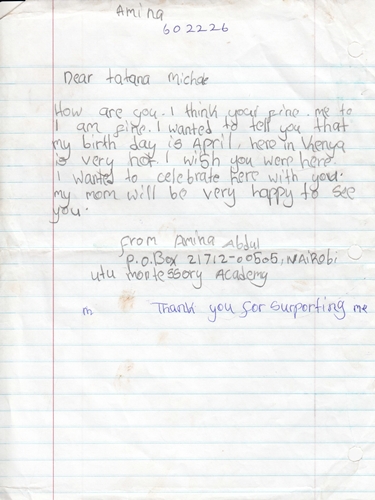 Amina
602226
Dear tatana Michae
How are you. I think your fine. me to
I am fine. I wanted to tell you that
my birth day is April, here in Kenya
is very hot I wish you were here.
I wanted to celebrate here with you.
my mom will be very happy to see
you.
from Amina Abdul
P.O.Box 21712-00505, NAIRobi
utu montessory Academy
m Thank you for surporting me